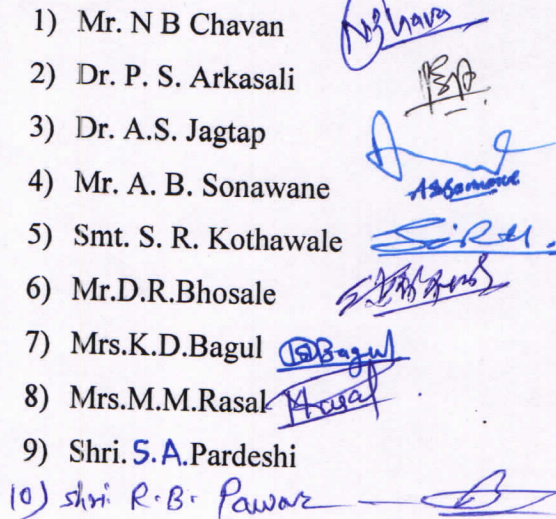 1) Mr. N B Chavan NBChavan
2) Dr. P. S. Arkasali
3) Dr. A.S. Jagtap
4) Mr. A. B. Sonawane ABSonawane
5) Smt. S. R. Kothawale
6) Mr.D.R.Bhosale
7) Mrs.K.D.Bagul KDBagul
8) Mrs.M.M.Rasal MRasal
9) Shri. S.A.Pardeshi
10) shri R.B. Pawar